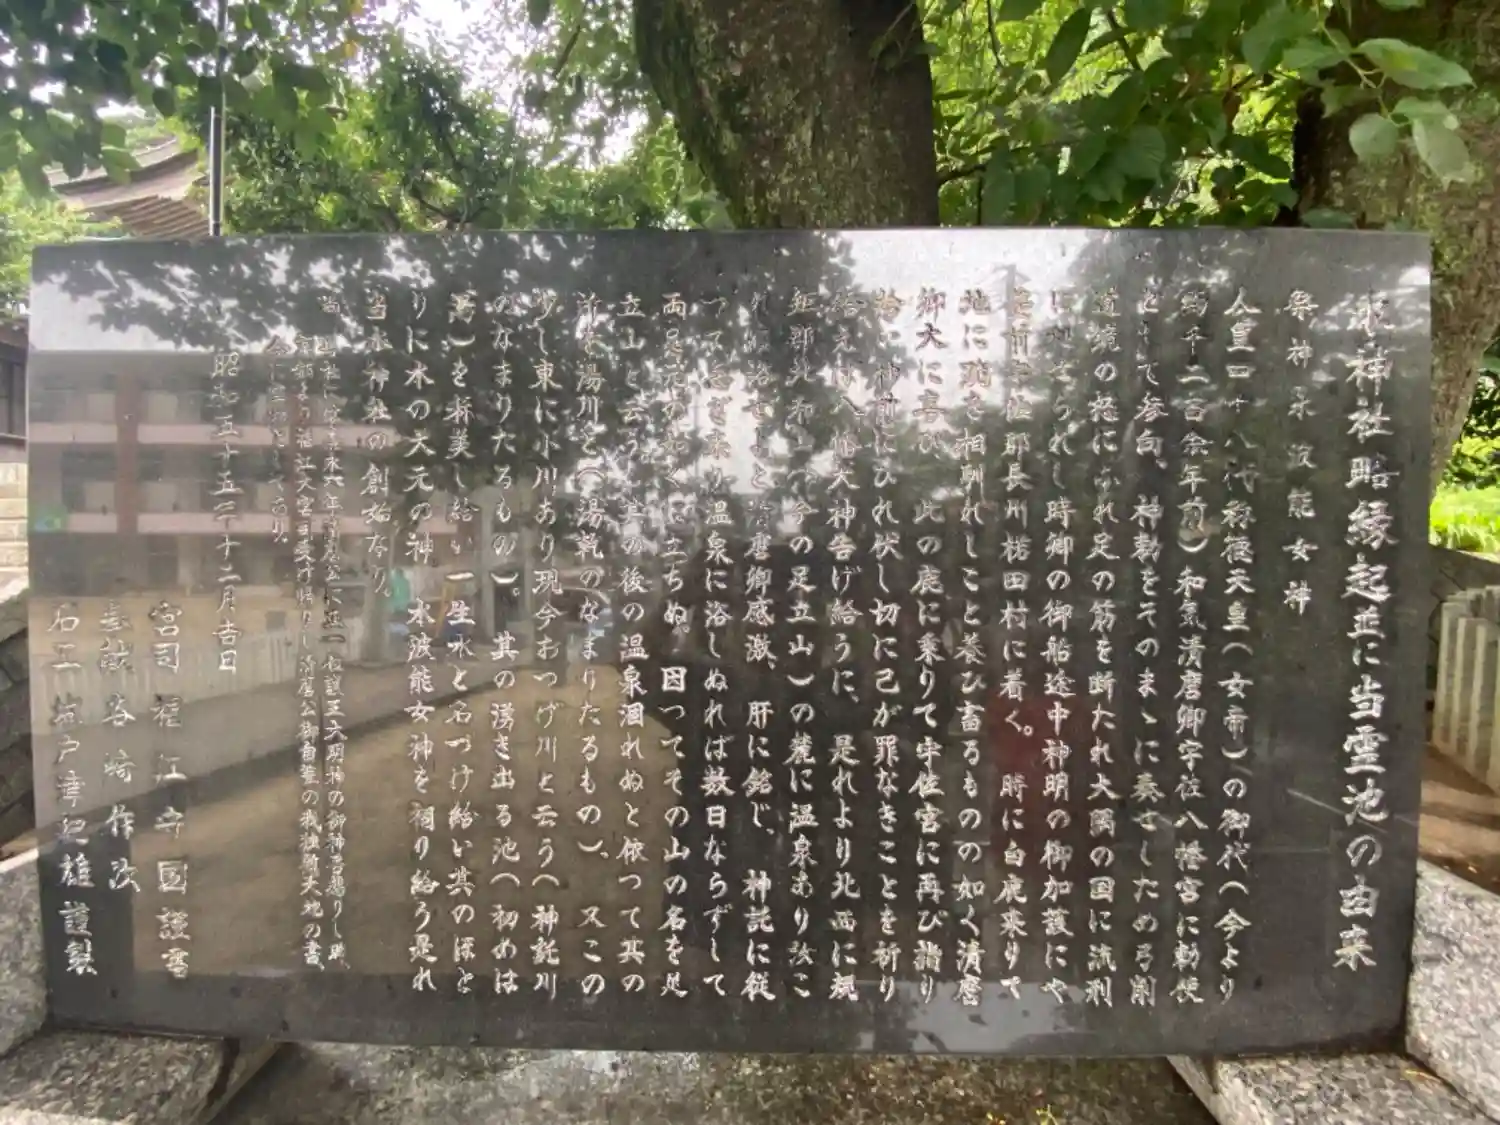 水神社略縁起並に当霊池の由来
祭神水波能女神
人皇四十八代称徳天皇(女帝)の御代(今より
約千二百余年前)和気清麿卿宇佐八幡宮に勅使
として参向、神勅をそのまゝに奏せしため弓削
道鏡の怒にふれ足の筋を断たれ大隅の国に流刑
に処せられし時卿の御船途中神明の御加護にや
豊前宇佐郡長川楉田村に着く。時に白鹿来りて
地に跪き相馴れしこと養ひ畜るものの如く清麿
卿大に喜び、此の鹿に乗りて宇佐宮に再び指り
給い神前にひれ伏し切に己が罪なきことを祈り
給えば八幡大神告げ給うに、是れより北西に規
矩郡北和山(今の足立山)の麓に温泉あり汝こ
れに浴せよと清麿卿感激、肝に銘じ、神託に従
つて急ぎ来り温泉に浴しぬれば数日ならずして
両足元の如くに立ちぬ。因つてその山の名を足
立山と云う。其の後の温泉涸れぬと依つて其の
許を湯川と(湯乾のなまりたるもの)、又この
少し東に小川あり現今おつげ川と云う(神託川
のなまりたるもの)。其の湧き出る池(初めは
湯)を称美し給い一生水と名づけ給い其のほと
りに水の大元の神。水波能女神を祠り給う是れ
当水神社の創始なり。
昭和五十五年十二月吉日
宮司 福江守国謹書